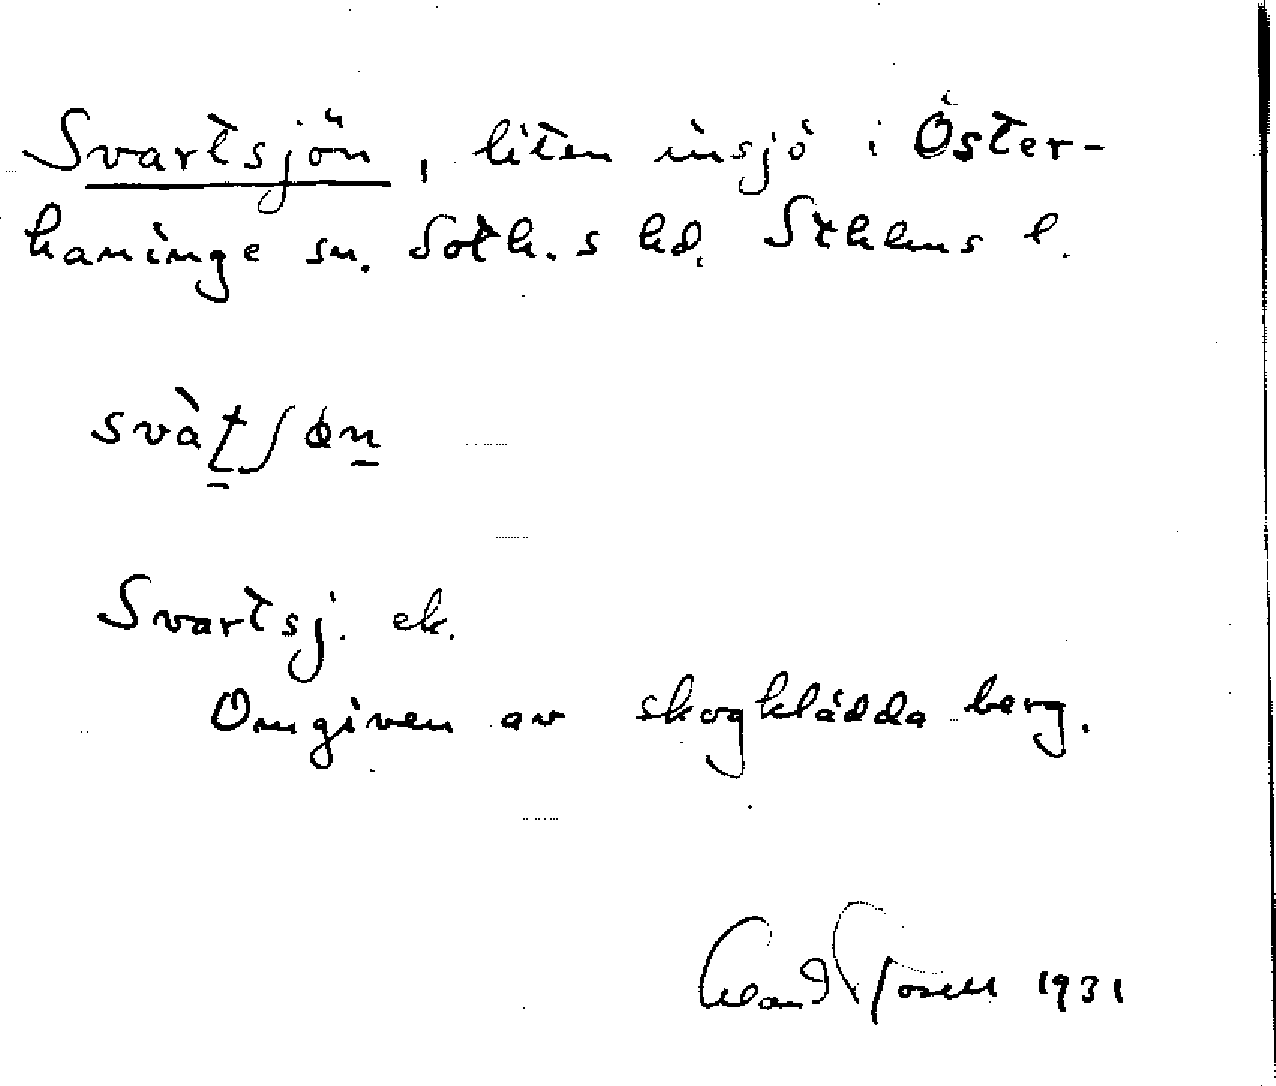 Svartsjön, liten insjö i Öster-
haninge sn. Soth.s hd. Sthlms l.
svàʈʃøn
Svartsj. ek.
Omgiven av skogklädda berg.
1931